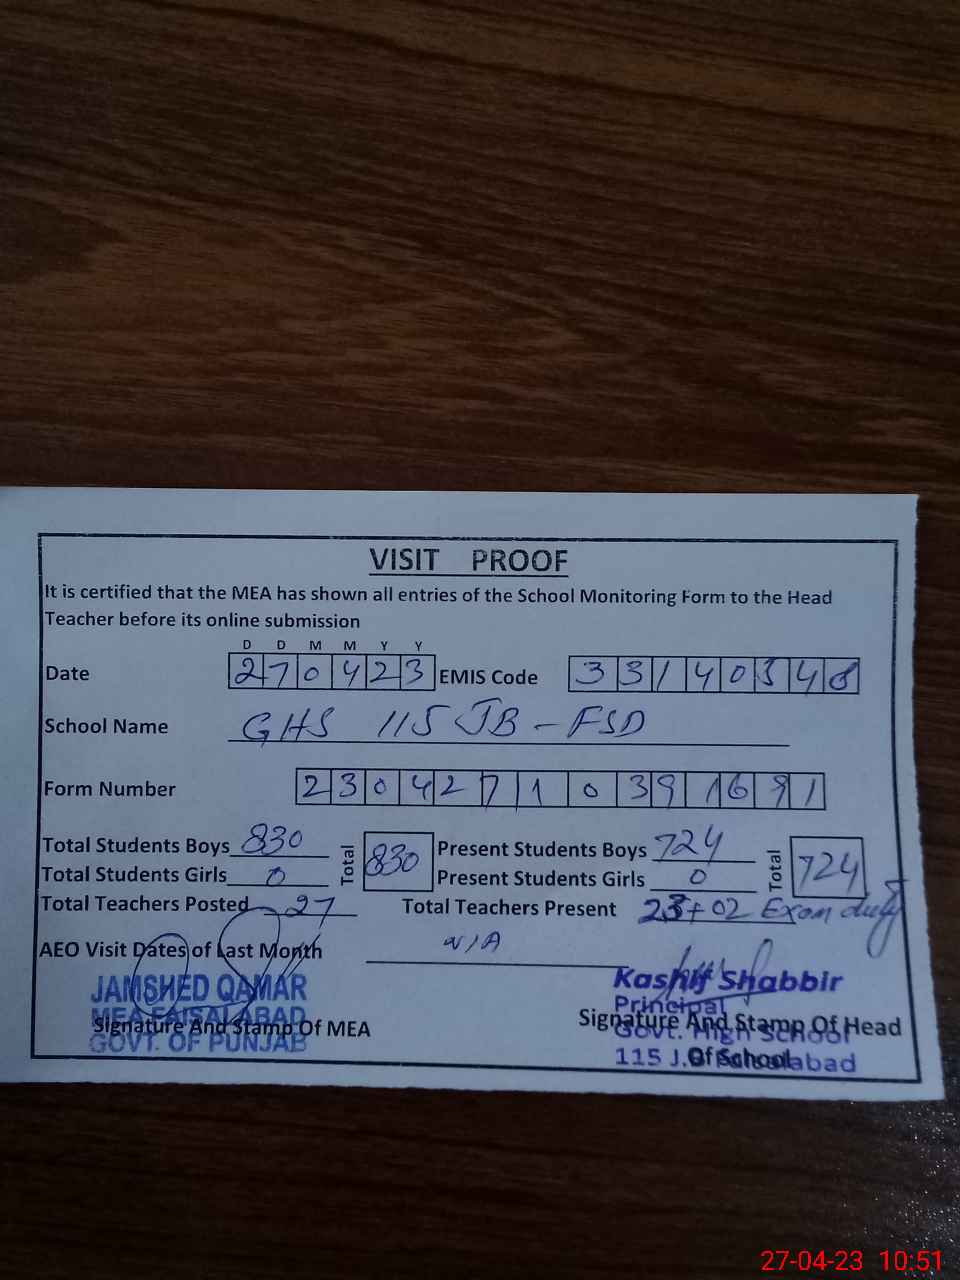 VISIT PROOF
It is certified that the MEA has shown all entries of the School Monitoring Form to the Head
Teacher before its online submission
D D M M Y Y
Date 270423 EMIS Code 331403
School Name GHS 115 JB - FSD
Form Number 230427103916
Total Students Boys 830 Total 830 Present Students Boys 724 Total 724
Total Students Girls 0 Present Students Girls 0
Total Teachers Posted 27 Total Teachers Present 23+02 Exam duty
AEO Visit Dates of Last Month N/A
JAMSHED QAMAR
MEA FAISALABAD
GOVT. OF PUNJAB
Signature And Stamp Of MEA
Kashif Shabbir
Principal
Govt. High School
115 J.B Faisalabad
Signature And Stamp Of Head
Of School
27-04-23 10:51